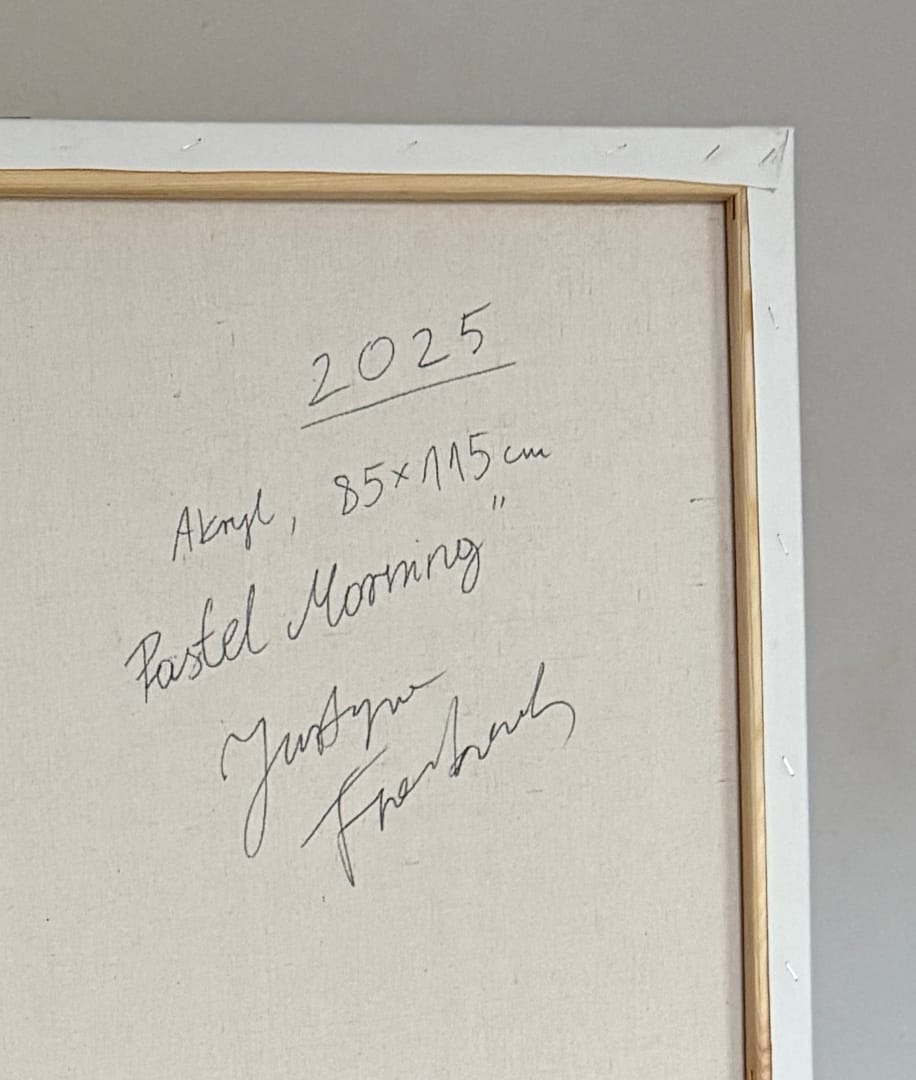 2025
Akryl, 85×115 cm
Pastel Morning"
Justyna